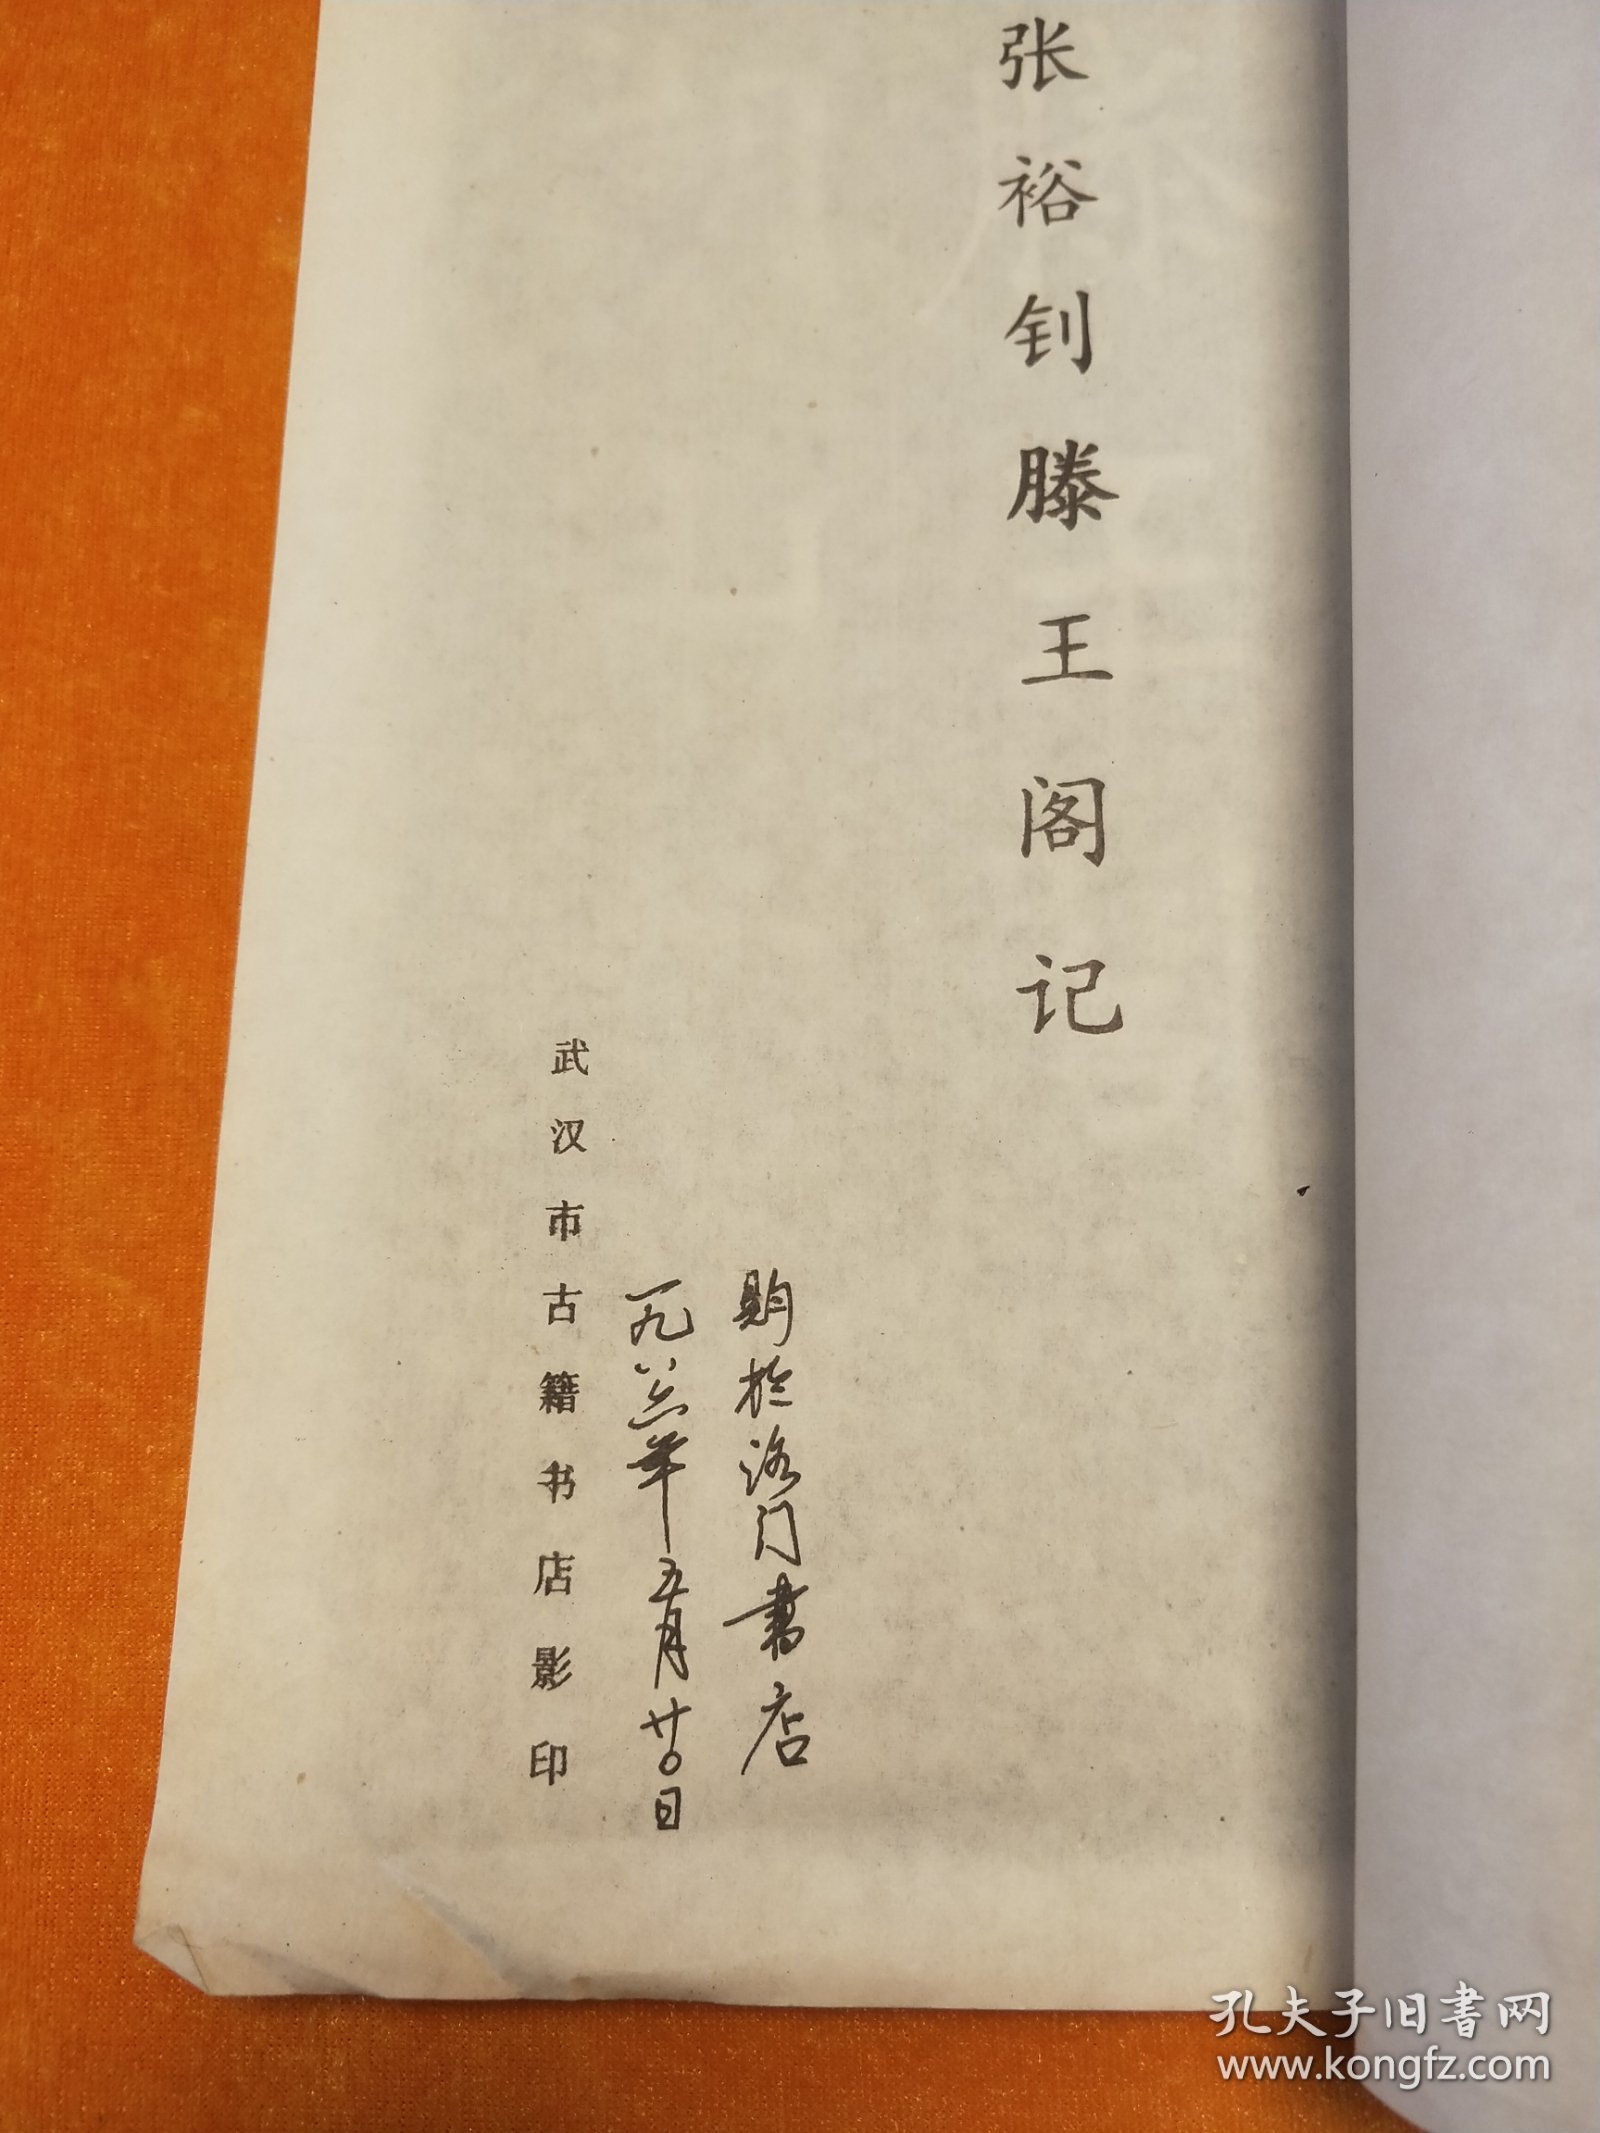 张裕钊滕王阁记
购於洛门書店
一九八六年五月廿〇日
武汉市古籍书店影印
孔夫子旧書网
www.kongfz.com